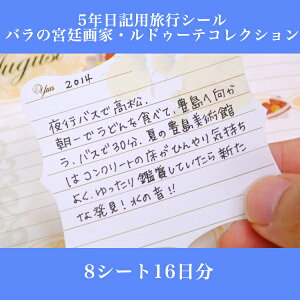 5年日記用旅行シール
バラの宮廷画家・ルドゥーテコレクション
August
Year 2014
夜行バスで高松、
朝一でうどんを食べて、豊島へ向か
う。バスで30分、夏の豊島美術館
はコンクリートの床がひんやり気持ち
よく、ゆったり鑑賞していたら新た
な発見！水の音!!
8シート16日分